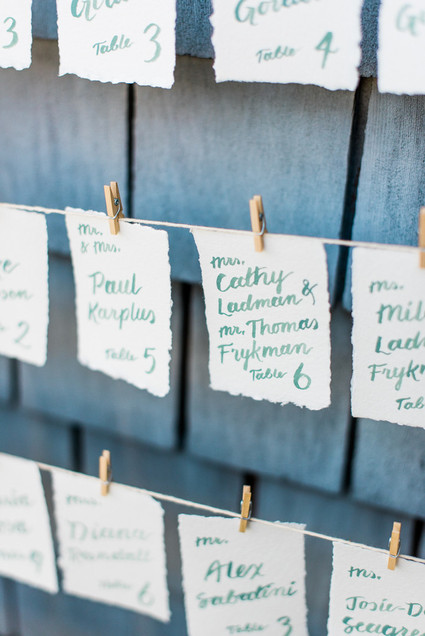 3
Table 3
Table 4
2
mr.
& mrs.
Paul
Karplus
Table 5
mrs.
Cathy
Ladman &
mr. Thomas
Frykman
Table 6
ms.
Lad
Fryk
Tab
Diana
Table 6
mr.
Alex
Sabatini
Table 3
ms.
Josie-D